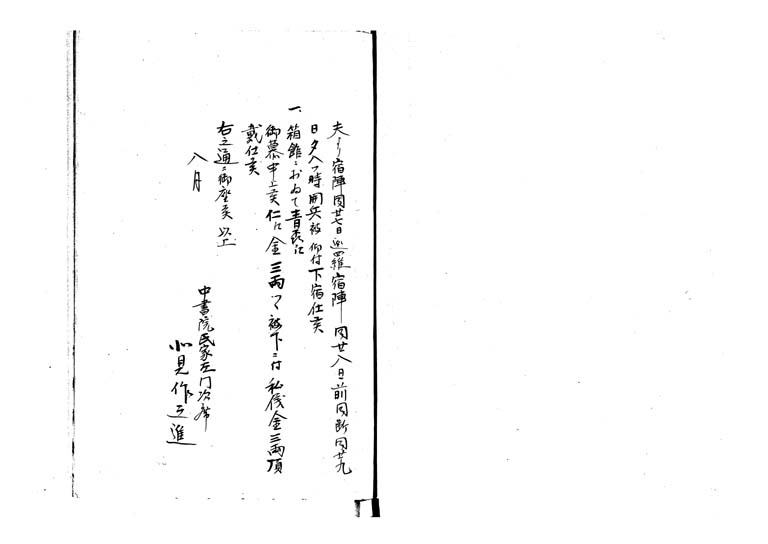 夫ゟ宿陣同廿七日迦羅宿陣同廿八日前同断同廿九
日夕八つ時開兵被仰付下宿仕候
一、箱館ニおゐて青森江
御慕申上候仁江金三両ツヽ被下ニ付私儀金三両頂
戴仕候
右之通ニ御座候以上
八月
中書院民家左門次席
小見作之進